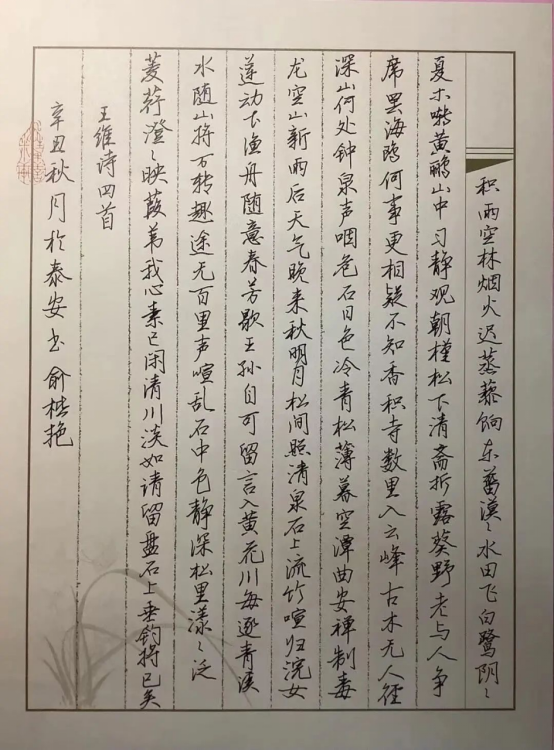 积雨空林烟火迟蒸藜饷东菑漠〻水田飞白鹭阴〻
夏木啭黄鹂山中习静观朝槿松下清斋折露葵野老与人争
席罢海鸥何事更相疑不知香积寺数里入云峰古木无人径
深山何处钟泉声咽危石日色冷青松薄暮空潭曲安禅制毒
龙空山新雨后天气晚来秋明月松间照清泉石上流竹喧归浣女
莲动下渔舟随意春芳歇王孙自可留言入黄花川每逐青溪
水随山将万转趣途无百里声喧乱石中色静深松里漾〻泛
菱荇澄〻映葭苇我心素已闲清川淡如请留盘石上垂钓将已矣
王维诗四首
辛丑秋月于泰安书俞